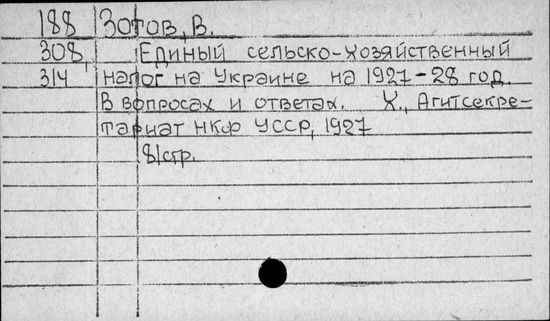 188 Зотов, В.
308, Единый сельско-хозяйственный
314 налог на Украине на 1927-28 год.
В вопросах и ответах. Х., Агитсекре-
тариат НКФ УССР, 1927
81стр.